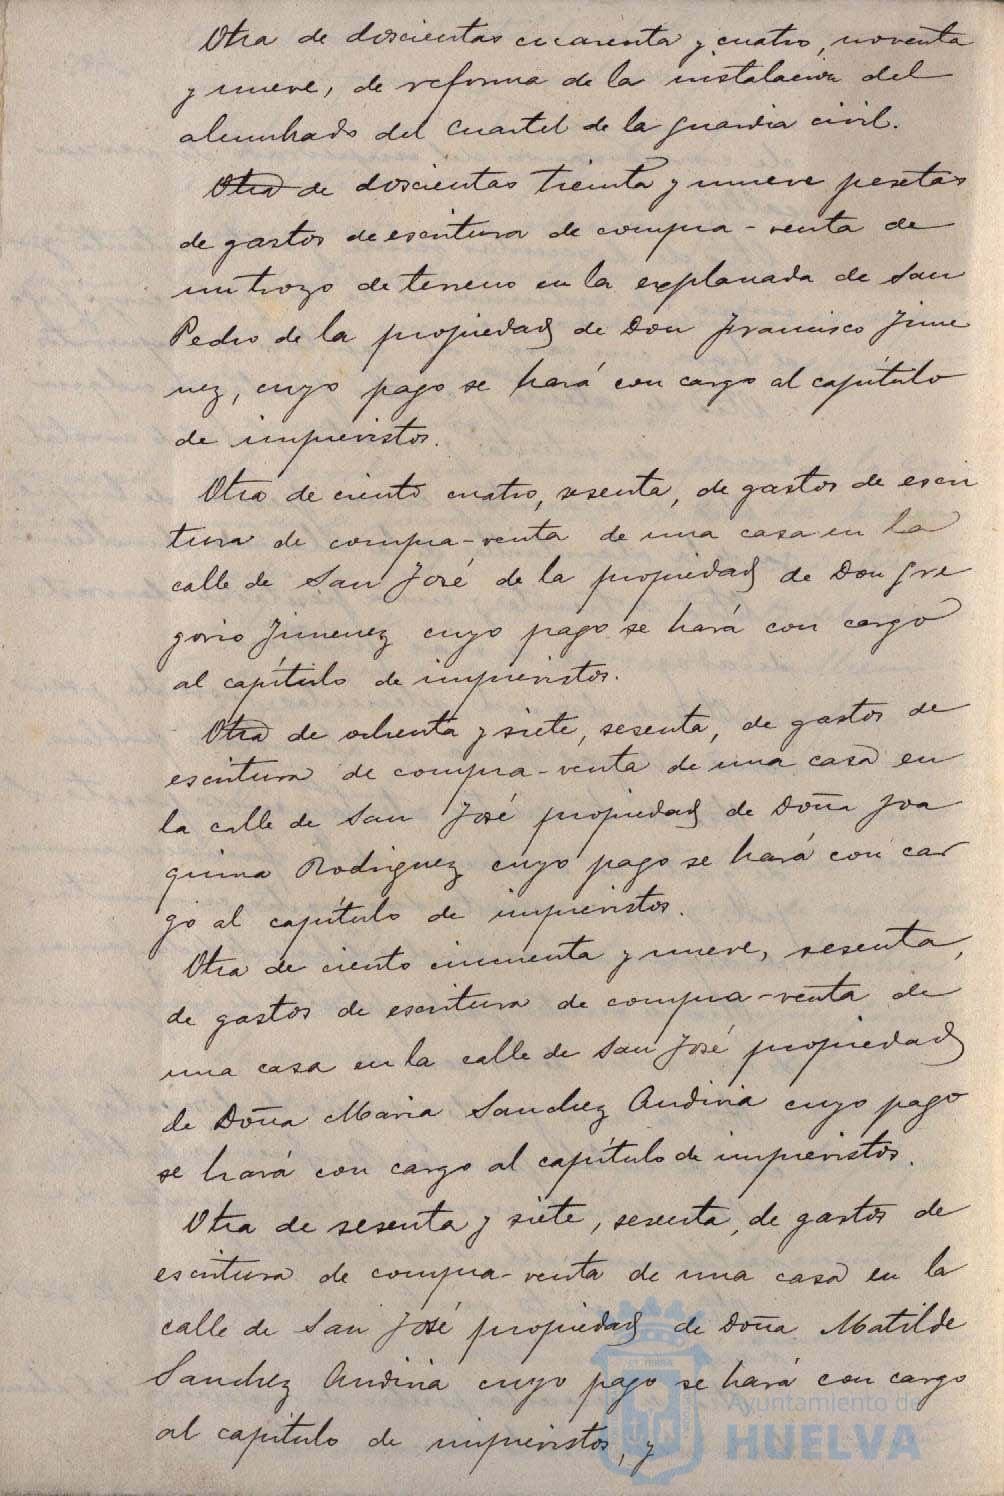 Otra de doscientas cuarenta y cuatro, noventa
y nueve, de reforma de la instalación del
alumbrado del Cuartel de la Guardia civil.
Otra de doscientas treinta y nueve pesetas
de gastos de escritura de compra-venta de
un trozo de terreno en la explanada de San
Pedro de la propiedad de Don Francisco Jime
nez, cuyo pago se hará con cargo al capítulo
de imprevistos.
Otra de ciento cuatro, sesenta, de gastos de escri
tura de compra-venta de una casa en la
calle de San José de la propiedad de Don Gre
gorio Jimenez cuyo pago se hará con cargo
al capítulo de imprevistos.
Otra de ochenta y siete, sesenta, de gastos de
escritura de compra-venta de una casa en
la calle de San José propiedad de Doña Joa
quina Rodriguez cuyo pago se hará con car
go al capítulo de imprevistos.
Otra de ciento cincuenta y nueve, sesenta,
de gastos de escritura de compra-venta de
una casa en la calle de San José propiedad
de Doña Maria Sanchez Andivia cuyo pago
se hará con cargo al capítulo de imprevistos.
Otra de sesenta y siete, sesenta, de gastos de
escritura de compra-venta de una casa en la
calle de San José propiedad de Doña Matilde
Sanchez Andivia cuyo pago se hará con cargo
al capitulo de imprevistos, y
Ayuntamiento de
HUELVA